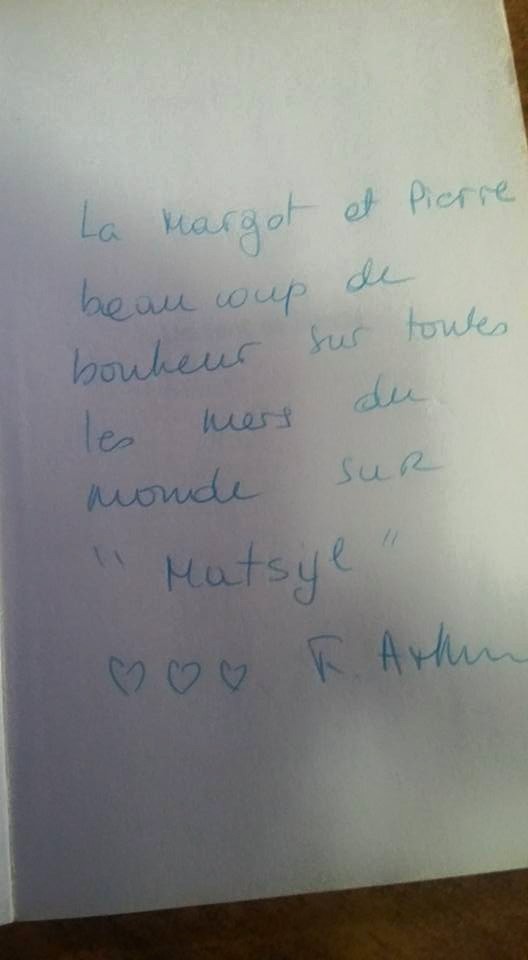 La Margot et Pierre
beaucoup de
bonheur sur toutes
les mers du
monde sur
"Matsyl"
♡♡♡